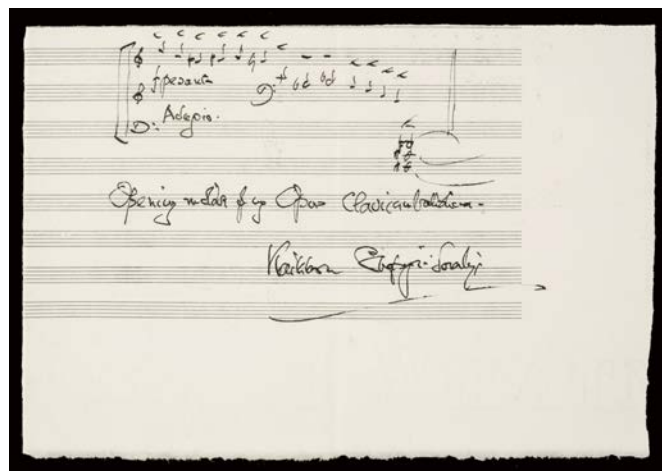 f pesante
Adagio.
Opening motif of my Opus Clavicembalisticum -
Kaikhosru Shapurji Sorabji